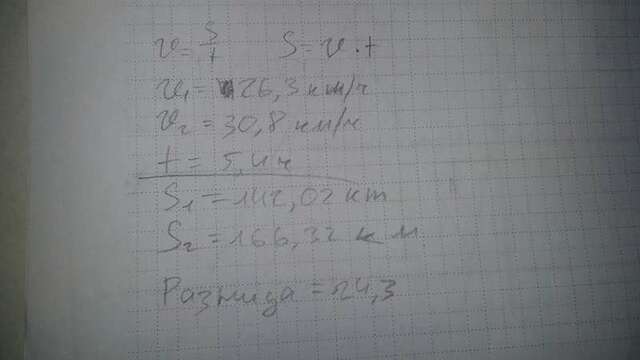 v = S/t S = v · t
v₁ = 26,3 км/ч
v₂ = 30,8 км/ч
t = 5,4 ч
S₁ = 142,02 км
S₂ = 166,32 км
Разница = 24,3